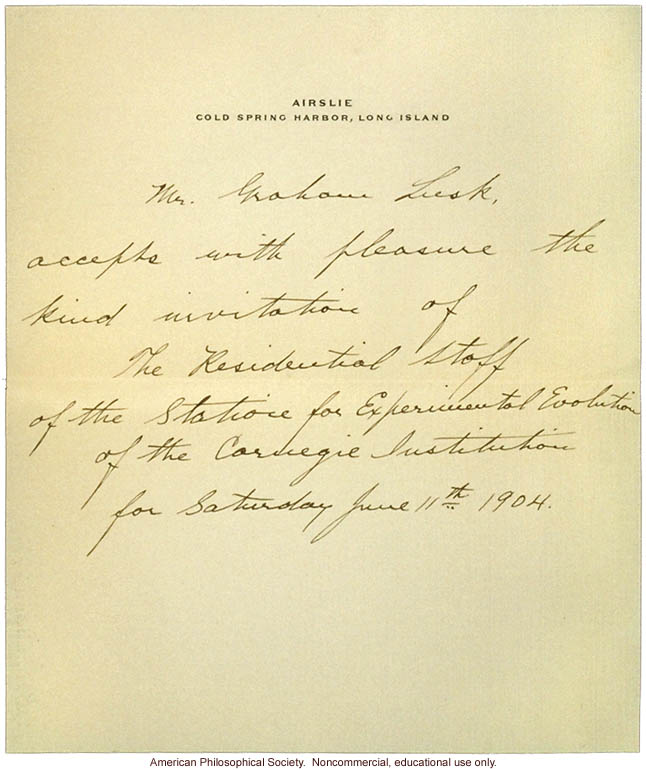 AIRSLIE
COLD SPRING HARBOR, LONG ISLAND
Mr. Graham Lusk,
accepts with pleasure the
kind invitation of
The Residential Staff
of the Station for Experimental Evolution
of the Carnegie Institution
for Saturday June 11th 1904.
American Philosophical Society. Noncommercial, educational use only.